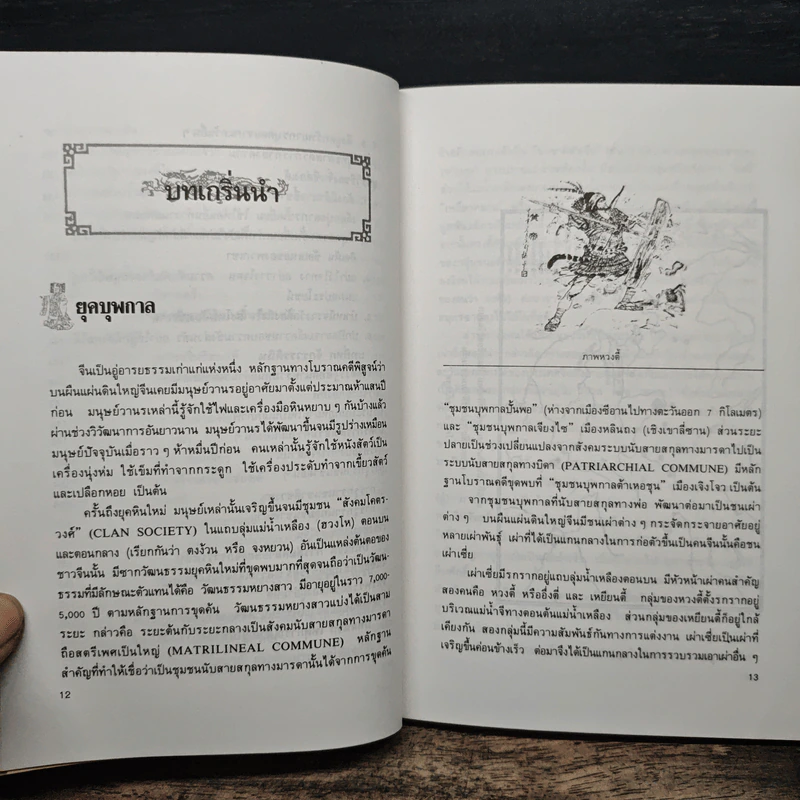 บทเกริ่นนำ
ยุคบุพกาล
จีนเป็นอู่อารยธรรมเก่าแก่แห่งหนึ่ง หลักฐานทางโบราณคดีพิสูจน์ว่า
บนผืนแผ่นดินใหญ่จีนเคยมีมนุษย์วานรอยู่อาศัยมาตั้งแต่ประมาณห้าแสนปี
ก่อน มนุษย์วานรเหล่านี้รู้จักใช้ไฟและเครื่องมือหินหยาบ ๆ กันบ้างแล้ว
ผ่านช่วงวิวัฒนาการอันยาวนาน มนุษย์วานรได้พัฒนาขึ้นจนมีรูปร่างเหมือน
มนุษย์ปัจจุบันเมื่อราว ๆ ห้าหมื่นปีก่อน คนเหล่านั้นรู้จักใช้หนังสัตว์เป็น
เครื่องนุ่งห่ม ใช้เข็มที่ทำจากกระดูก ใช้เครื่องประดับทำจากเขี้ยวสัตว์
และเปลือกหอย เป็นต้น
ครั้นถึงยุคหินใหม่ มนุษย์เหล่านั้นเจริญขึ้นจนมีชุมชน "สังคมโคตร-
วงศ์" (CLAN SOCIETY) ในแถบลุ่มแม่น้ำเหลือง (ฮวงโห) ตอนบน
และตอนกลาง (เรียกกันว่า ตงง้วน หรือ จงหยวน) อันเป็นแหล่งต้นตอของ
ชาวจีนนั้น มีซากวัฒนธรรมยุคหินใหม่ที่ขุดพบมากที่สุดจนถือว่าเป็นวัฒน-
ธรรมที่มีลักษณะตัวแทนได้คือ วัฒนธรรมหยางสาว มีอายุอยู่ในราว 7,000-
5,000 ปี ตามหลักฐานการขุดค้น วัฒนธรรมหยางสาวแบ่งได้เป็นสาม
ระยะ กล่าวคือ ระยะต้นกับระยะกลางเป็นสังคมนับสายสกุลทางมารดา
ถือสตรีเพศเป็นใหญ่ (MATRILINEAL COMMUNE) หลักฐาน
สำคัญที่ทำให้เชื่อว่าเป็นชุมชนนับสายสกุลทางมารดานั้นได้จากการขุดค้น
12
黄帝
ภาพหวงตี้
"ชุมชนบุพกาลปั้นพอ" (ห่างจากเมืองซีอานไปทางตะวันออก 7 กิโลเมตร)
และ "ชุมชนบุพกาลเจียงไซ" เมืองหลินถง (เชิงเขาลี่ซาน) ส่วนระยะ
ปลายเป็นช่วงเปลี่ยนแปลงจากสังคมระบบนับสายสกุลทางมารดาไปเป็น
ระบบนับสายสกุลทางบิดา (PATRIARCHIAL COMMUNE) มีหลัก
ฐานโบราณคดีขุดพบที่ "ชุมชนบุพกาลต้าเหอชุน" เมืองเจิงโจว เป็นต้น
จากชุมชนบุพกาลที่นับสายสกุลทางพ่อ พัฒนาต่อมาเป็นชนเผ่า
ต่าง ๆ บนผืนแผ่นดินใหญ่จีนมีชนเผ่าต่าง ๆ กระจัดกระจายอาศัยอยู่
หลายเผ่าพันธุ์ เผ่าที่ได้เป็นแกนกลางในการก่อตัวขึ้นเป็นคนจีนนั้นคือชน
เผ่าเซี่ย
เผ่าเซี่ยมีรกรากอยู่แถบลุ่มน้ำเหลืองตอนบน มีหัวหน้าเผ่าคนสำคัญ
สองคนคือ หวงตี้ หรืออึ่งตี่ และ เหยียนตี้ กลุ่มของหวงตี้ตั้งรกรากอยู่
บริเวณแม่น้ำจีทางตอนต้นแม่น้ำเหลือง ส่วนกลุ่มของเหยียนตี้ก็อยู่ใกล้
เคียงกัน สองกลุ่มนี้มีความสัมพันธ์กันทางการแต่งงาน เผ่าเซี่ยเป็นเผ่าที่
เจริญขึ้นค่อนข้างเร็ว ต่อมาจึงได้เป็นแกนกลางในการรวบรวมเอาเผ่าอื่น ๆ
13